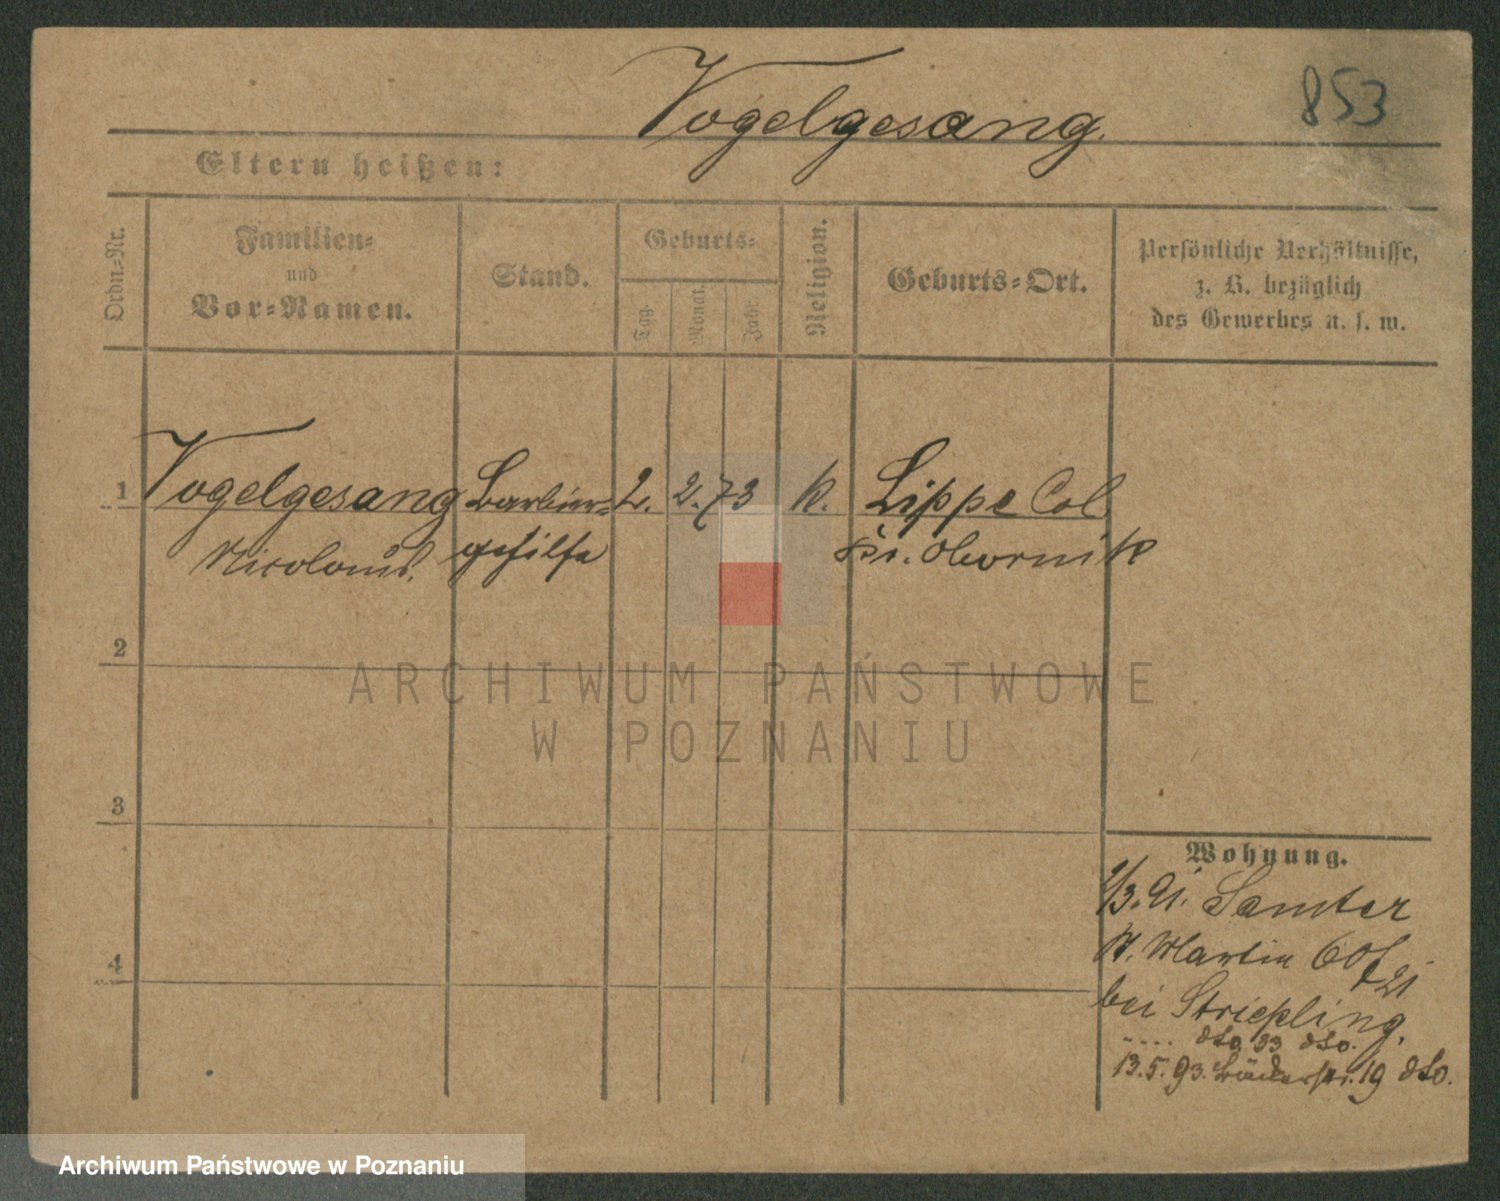 853
Vogelgesang.
Eltern heißen:
Ordn.-Nr.
Familien-
und
Vor-Namen.
Stand.
Geburts-
Tag.
Monat.
Jahr.
Religion.
Geburts-Ort.
Persönliche Verhältnisse,
z. B. bezüglich
des Gewerbes u. s. w.
1 Vogelgesang Barbier- 2. 2. 73 k. Lippe Col.
Nicolaus. gehilfe Kr. Obornik
2
3
4
Wohnung.
2/3. 91. Samter
St. Martin 60
bei Striepling.
dto 93 dto.
13.5.93. Bäckerstr. 19 dto.
ARCHIWUM PAŃSTWOWE
W POZNANIU
Archiwum Państwowe w Poznaniu